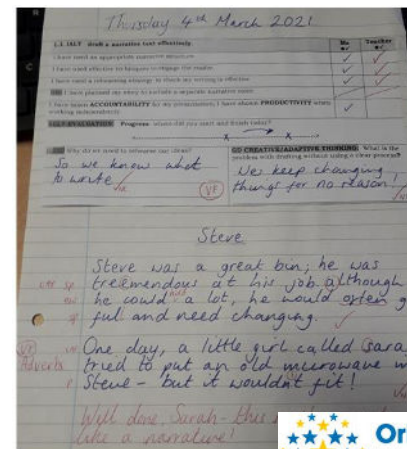 Thursday 4th March 2021
I.A. IALT draft a narrative text effectively.
Me
Teacher
I have used an appropriate narrative structure
I have used effective techniques to engage the reader
I have used a rehearsing strategy to check my writing is effective
I have planned my story to include a separate narrative voice
I have taken ACCOUNTABILITY for my presentation, I have shown PRODUCTIVITY when working independently
SELF-EVALUATION Progress: where did you start and finish today?
X
X
Why do we need to rehearse our ideas?
So we know what
to write
VF
GD CREATIVE/ADAPTIVE THINKING: What is the
problem with drafting without using a clear process?
keep changing
things for no reason.
Steve
Steve was a great bin; he was
tremendous at his job although
he could a lot, he would often g
full and need changing.
One day, a little girl called Sara
tried to put an old microwave
Steve - but it wouldn't fit!
VF
Adverbs
sp
Well done, Sarah - this
like a narrative!
Or